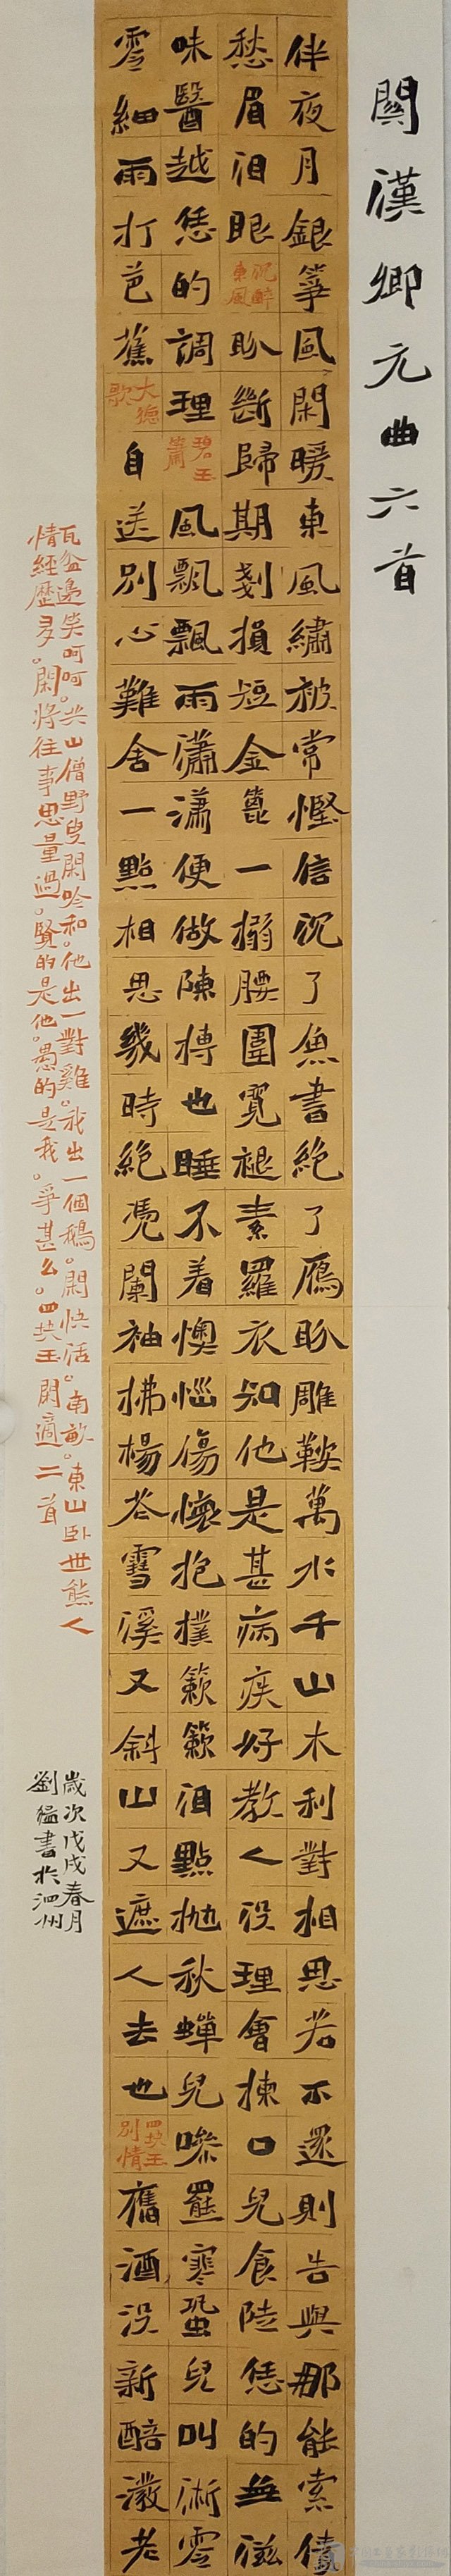 關漢卿元曲六首
伴夜月銀箏風閑暖東風繡被常慳信沉了魚書絕了雁盼雕鞍萬水千山木利對相思若不還則告與那能索債
愁眉泪眼沉醉東風盼斷歸期劃損短金篦一搦腰圍寬褪素羅衣知他是甚病疾好教人没理會揀口兒食陡恁的無滋
味醫越恁的調理碧玉簫風飄飄雨瀟瀟便做陳摶也睡不着懊惱傷懷抱撲簌簌泪點抛秋蟬兒噪罷寒蛩兒叫淅零
零細雨打芭蕉大德歌自送別心難舍一點相思幾時絕凭闌袖拂楊花雪溪又斜山又遮人去也四块玉別情舊酒没新醅潑老
瓦盆邊笑呵呵。共山僧野叟閑吟和。他出一對雞。我出一個鵝。閑快活。南畝。東山卧世態人
情經歷多。閑將往事思量過。賢的是他。愚的是我。爭甚么。四块玉閑適二首
歲次戊戌春月
劉書於泗州